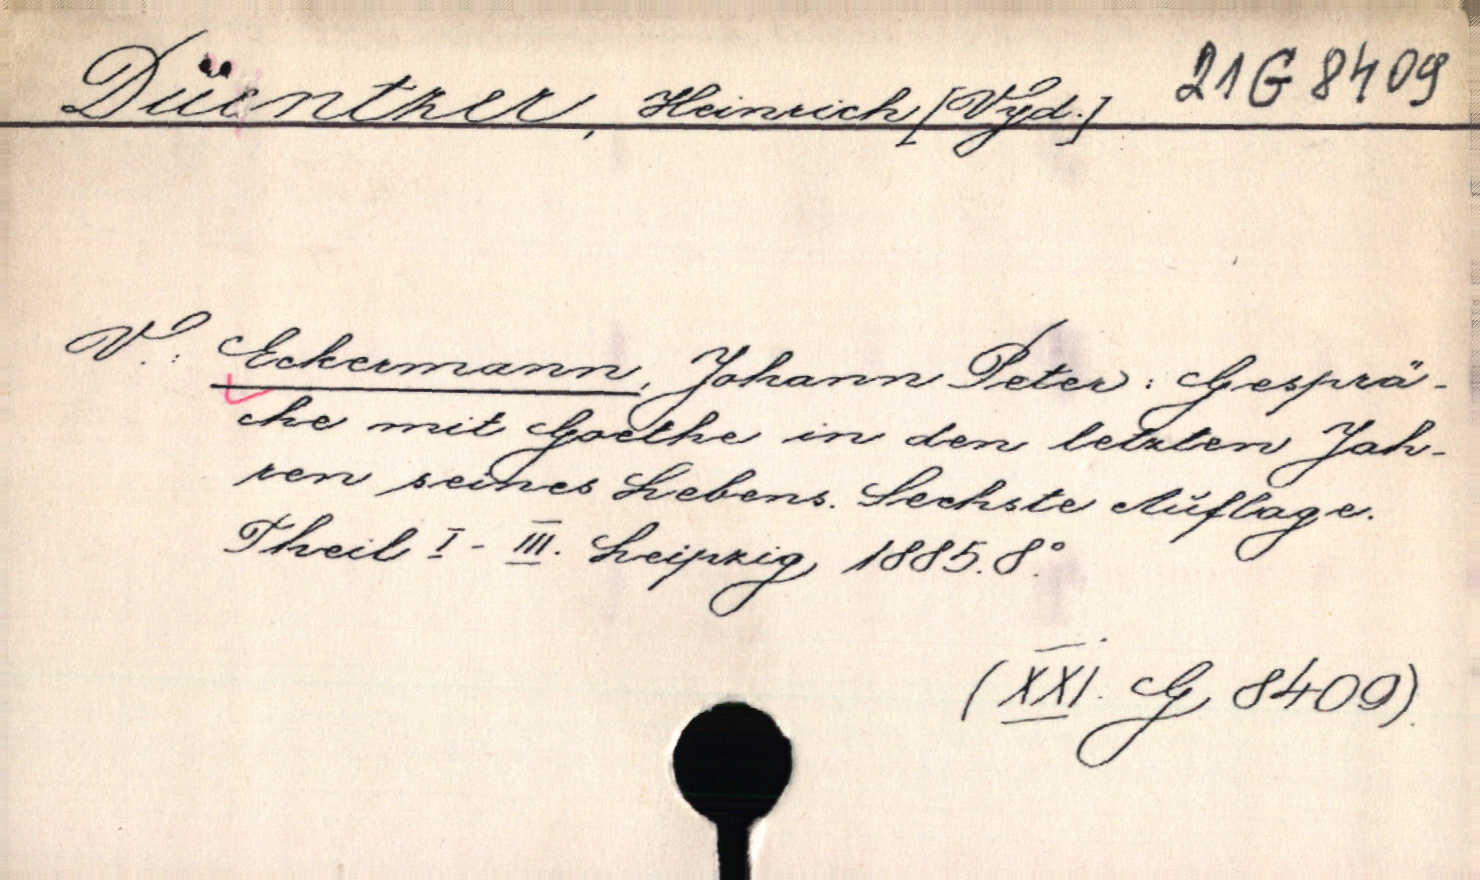 Düentzer, Heinrich [Vyd.] 21 G 8409
V.: Eckermann, Johann Peter: Gesprä-
che mit Goethe in den letzten Jah-
ren seines Lebens. Sechste Auflage.
Theil I - III. Leipzig, 1885. 8°.
(XXI. G 8409).